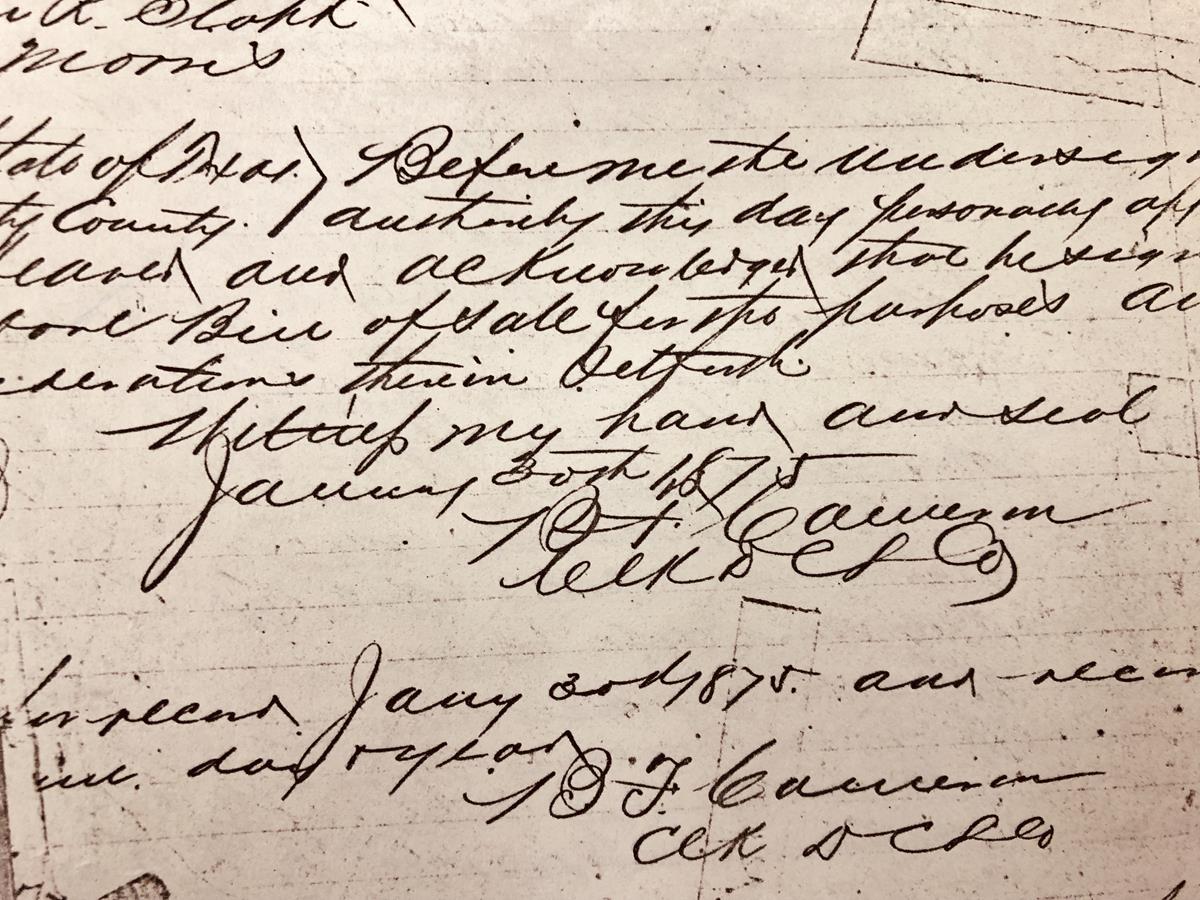 R. Stohh
Morris
tate of Texas. Before me the undersig
ty County. authority this day personaly app
eared and acknowledged that he sign
bove Bill of Sale for the purposes an
iderations therein Setforth.
Witness my hand and seal
January 30th 1875
B. F. Cameron
Clk D C L Co
for record Jany 30th 1875. and recor
me. day & year
B F. Cameron
Clk D C L Co